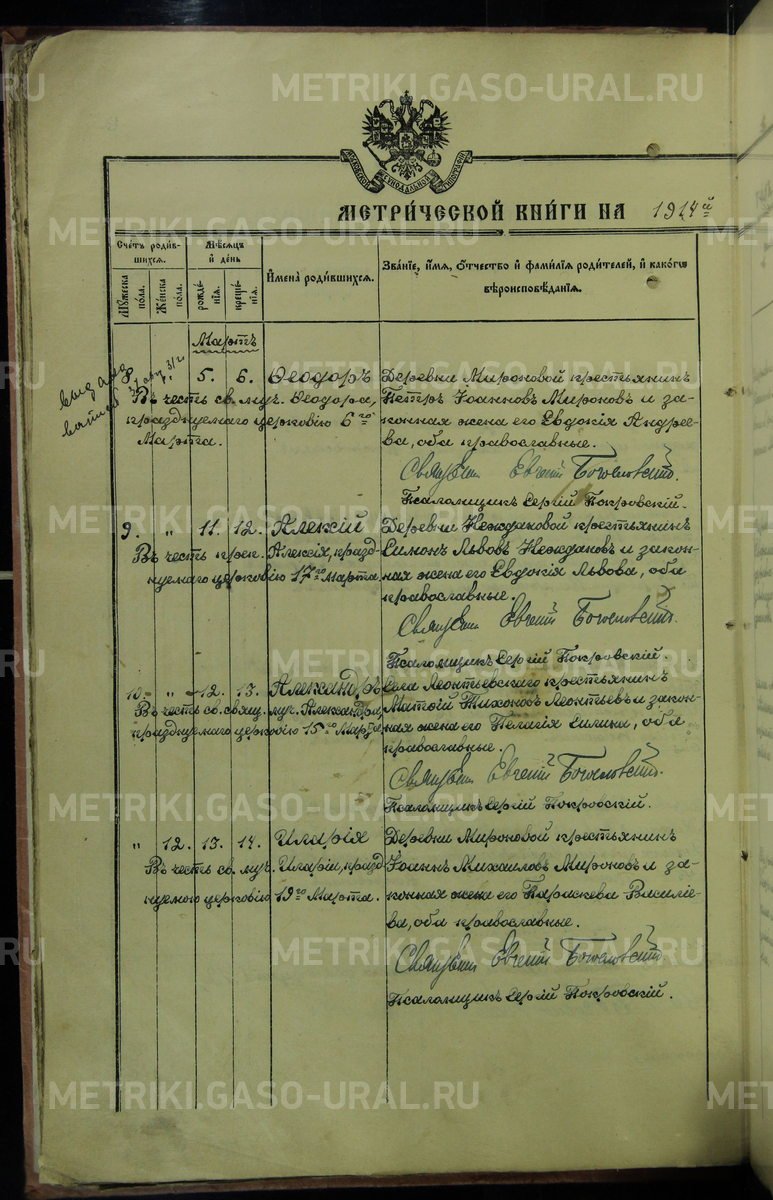 МЕТРИ́ЧЕСКОЙ КНИ́ГИ НА 1914 й
Сче́тъ роди́в-
шихся.
Мѣсяцъ
и день
Имена̀ роди́вшихся.
Зва́нїе, и́мя, ѻ́тчество и фами́лїя роди́телей, и како́гѡ
вѣроисповѣ́данїя.
Му́жеска
по́ла.
Же́нска
по́ла.
рожде́-
нїя.
креще́-
нїя.
Мартъ
8. 5. 6. Ѳеодоръ
Въ честь св. муч. Ѳеодора,
празднуемаго церковію 6го
Марта.
Деревни Мироновой крестьянинъ
Петръ Іоанновъ Мироновъ и за-
конная жена его Евдокія Андрее-
ва, оба православные.
Священ. Евгеній Богословский.
Псаломщикъ Сергій Покровскій.
9. " 11. 12. Алексій
Въ честь преп. Алексія, празд-
нуемаго церковію 17го Марта.
Деревни Неждановой крестьянинъ
Симонъ Львовъ Неждановъ и закон-
ная жена его Евдокія Львова, оба
православные.
Священ. Евгеній Богословский.
Псаломщикъ Сергій Покровскій.
10. " 12. 13. Александръ
Въ честь св. свящ. муч. Александра,
празднуемаго церковію 15го Марта.
Села Леонтьевскаго крестьянинъ
Матѳій Тихоновъ Леонтьевъ и закон-
ная жена его Пелагія Силина, оба
православные.
Священ. Евгеній Богословский.
Псаломщикъ Сергій Покровскій.
" 12. 13. 14. Иларія
Въ честь св. муч. Иларіи, празд-
нуемою церковію 19го Марта.
Деревни Мироновой крестьянинъ
Іоаннъ Михаиловъ Мироновъ и за-
конная жена его Параскева Василіе-
ва, оба православные.
Священ. Евгеній Богословский
Псаломщикъ Сергій Покровскій.
METRIKI.GASO-URAL.RU